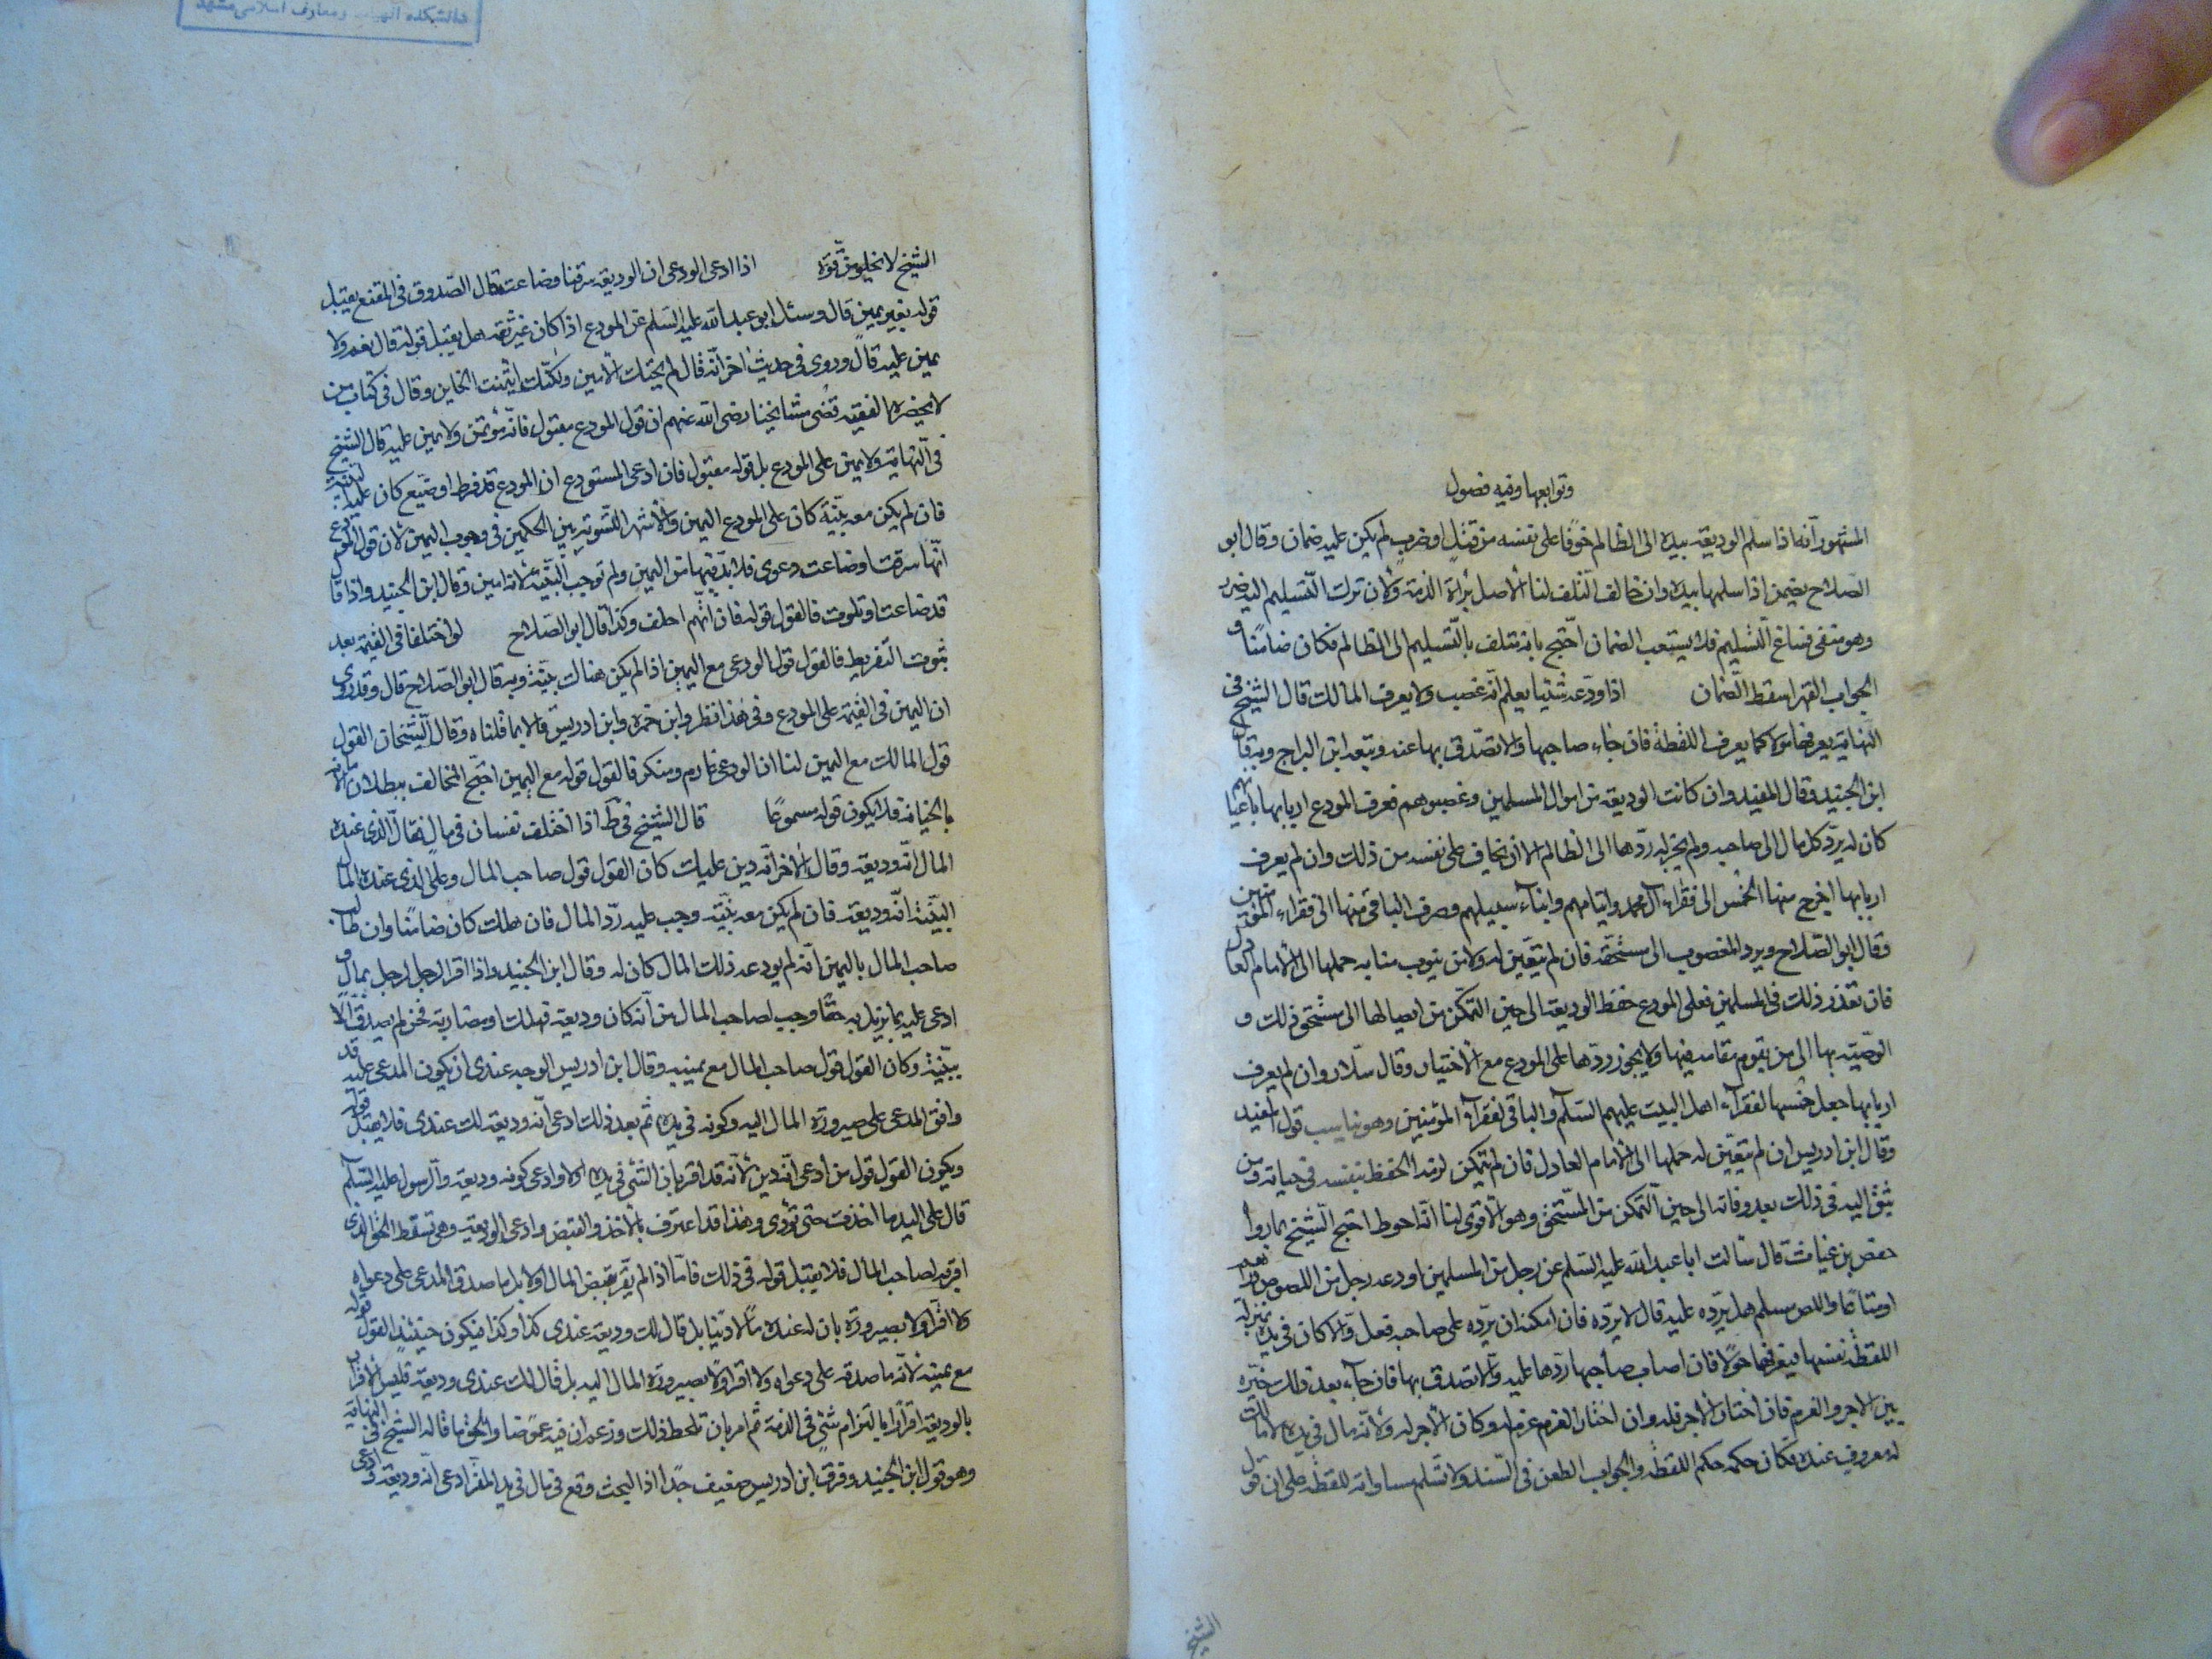 وتوابعها وفيه فصول
المشهور انّه اذا سلّم الوديعة بيده الى الظالم خوفًا على نفسه من قتل او ضرب لم يكن عليه ضمان وقال ابو
الصّلاح يضمن اذا سلمها بيده وان خالف التلف لنا الاصل براءة الذمة ولأن ترك التّسليم اليه ضرر
وهو منفى فساغ التّسليم فلا يستعقب الضمان احتجّ بانه تلف بالتّسليم الى الظالم فكان ضامنًا و
الجواب القهر اسقط الضّمان اذا ودعه شيئا يعلم انّه غصب ولا يعرف المالك قال الشيخ فى
النّهاية يعرفها حولا كما يعرف اللقطة فان جاء صاحبها والا تصدّق بها عنه وتبعه ابن البراج وبه قال
ابن الجنيد وقال المفيد وان كانت الوديعة من اموال المسلمين وغصبوهم فعرف المودع اربابها باعيانهم
كان له يردّ كل مال الى صاحبه ولم يجز له ردّها الى الظالم الا ان يخاف على نفسه من ذلك وان لم يعرف
اربابها اخرج منها الخمس الى فقراء آل محمد وايتامهم وابناء سبيلهم وصرف الباقى منها الى فقراء المؤمنين
وقال ابو الصّلاح ويرد المغصوب الى مستحقه فان لم يتعيّن له ولا من ينوب منابه حملها الى الامام العادل
فان تعذر ذلك فى المسلمين فعلى المودع حفظ الوديعة الى حين التمكّن من ايصالها الى مستحقى ذلك و
الوصيّة بها الى من يقوم مقامه فيها ولا يجوز ردّها على المودع مع الاختيار وقال سلّار وان لم يعرف
اربابها جعل خمسها لفقراء اهل البيت عليهم السّلام والباقى لفقراء المؤمنين وهو يناسب قول المفيد
وقال ابن ادريس ان لم يتعيّن له حملها الى الامام العادل فان لم يتمكّن لزمه الحفظ بنفسه فى حياته ومن
يثق اليه فى ذلك بعد وفاته الى حين التمكن من المستحق وهو الاقوى لنا انّه احوط احتج الشيخ بما رواه
حفص بن غياث قال سالت ابا عبد الله عليه السّلم عن رجل من المسلمين اودعه رجل من اللصوص دراهم
او متاعًا واللص مسلم هل يردّه عليه قال لا يردّه فان امكنه ان يردّه على صاحبه فعل والا كان فى يده بمنزلة
اللقطة نفسها فيعرفها حولا فان اصاب صاحبها ردّها عليه والا تصدق بها فان جاء بعد ذلك خيّره
بين الاجر والغرم فان اختار الاجر فله وان اختار الغرم غرم له وكان الاجر له ولأنّه مال فى يده لا مالك
له معروف عنده فكان حكمه حكم اللقطة والجواب الطعن فى السّند ولا نسلم مساواته للقطة على ان قول
الشيخ
الشيخ لا يخلو من قوّة اذا ادعى الودعى ان الوديعة سرقت او ضاعت قال الصّدوق فى المقنع يقبل
قوله بغير يمين قال وسئل ابو عبد الله عليه السّلم عن المودع اذا كان غير ثقة هل يقبل قوله قال نعم ولا
يمين عليه قال وروى فى حديث اخر انّه قال لم يخنك الامين ولكنّك ائتمنت الخاين وقال فى كتاب من
لا يحضره الفقيه قضى مشايخنا رضى الله عنهم ان قول المودع مقبول فانّه مؤتمن ولا يمين عليه قال الشيخ
فى النّهاية ولا يمين على المودع بل قوله مقبول فان ادعى المستودع ان المودع قد فرط او ضيّع كان عليه البيّنة
فان لم يكن معه بيّنة كان على المودع اليمين والأشهر التّسوية بين الحكمين فى وجوب اليمين لأن قول المودع
انّها سرقت او ضاعت دعوى فلا بدّ فيها من اليمين ولم توجب البيّنة لأنه امين وقال ابن الجنيد واذا قال
قد ضاعت او تلفت فالقول قوله فان اتّهم احلف وكذا قال ابو الصّلاح لو اختلفا فى القيمة بعد
ثبوت التّفريط فالقول قول الودعى مع اليمين اذا لم يكن هناك بيّنة وبه قال ابو الصّلاح قال وقد روى
ان اليمين فى القيمة على المودع وفى هذا نظر وابن حمزة وابن ادريس قالا بما قلناه وقال الشّيخان القول
قول المالك مع اليمين لنا ان الودعى غارم ومنكر فالقول قوله مع اليمين احتجّ المخالف ببطلان امانته
بالخيانة فلا يكون قوله مسموعًا قال الشيخ فى ط اذا اختلف نفسان فى مال فقال الذى عنده
المال انّه وديعة وقال الاخر انّه دين عليك كان القول قول صاحب المال وعلى الذى عنده المال
البيّنة انّه وديعة فان لم يكن معه بيّنة وجب عليه ردّ المال فان هلك كان ضامنًا وان طالب
صاحب المال باليمين انّه لم يودعه ذلك المال كان له وقال ابن الجنيد واذا اقر الرجل لرجل بمال و
ادعى عليه بما يزيل به حقًا وجب لصاحب المال من انّه كان وديعة فهلك او مضاربة فخسر لم يصدق الا
ببيّنة وكان القول قول صاحب المال مع يمينه وقال ابن ادريس الوجه عندى ان يكون المدعى عليه قد
وافق المدعى على صيرورة المال اليه وكونه فى يده ثم بعد ذلك ادعى انّه وديعة لك عندى فلا يقبل قوله
ويكون القول قول من ادعى انّه دين لأنّه قد اقر بان الشّئ فى يده اولا وادعى كونه وديعة والرسول عليه السّلام
قال على اليد ما اخذت حتى تؤدى وهذا قد اعترف بالاخذ والقبض وادعى الوديعة وهى تسقط الحق الذى
اقر به لصاحب المال فلا يقبل قوله فى ذلك فامّا اذا لم يقر بقبض المال اولا بل ما صدق المدعى على دعواه
ولا اقر اولا بصيرورة بان له عنده مالا دينا بل قال لك وديعة عندى كذا وكذا فيكون حينئذ القول قوله
مع يمينه لأنّه ما صدقه على دعواه ولا اقر اولا بصيرورة المال اليه بل قال لك عندى وديعة فليس الاقرار
بالوديعة اقرارا بالتزام شئ فى الذمة ثم امر بان تلحظ ذلك وزعم ان فيه غموضا والحق ما قاله الشيخ فى النهاية
وهو قول ابن الجنيد وفرق ابن ادريس ضعيف جدّا اذا البحث وقع فى مال فى يد المقر ادعى انّه وديعة وادعى